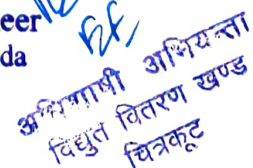 eer
da
अधिशाषी अभियन्ता
विद्युत वितरण खण्ड
चित्रकूट